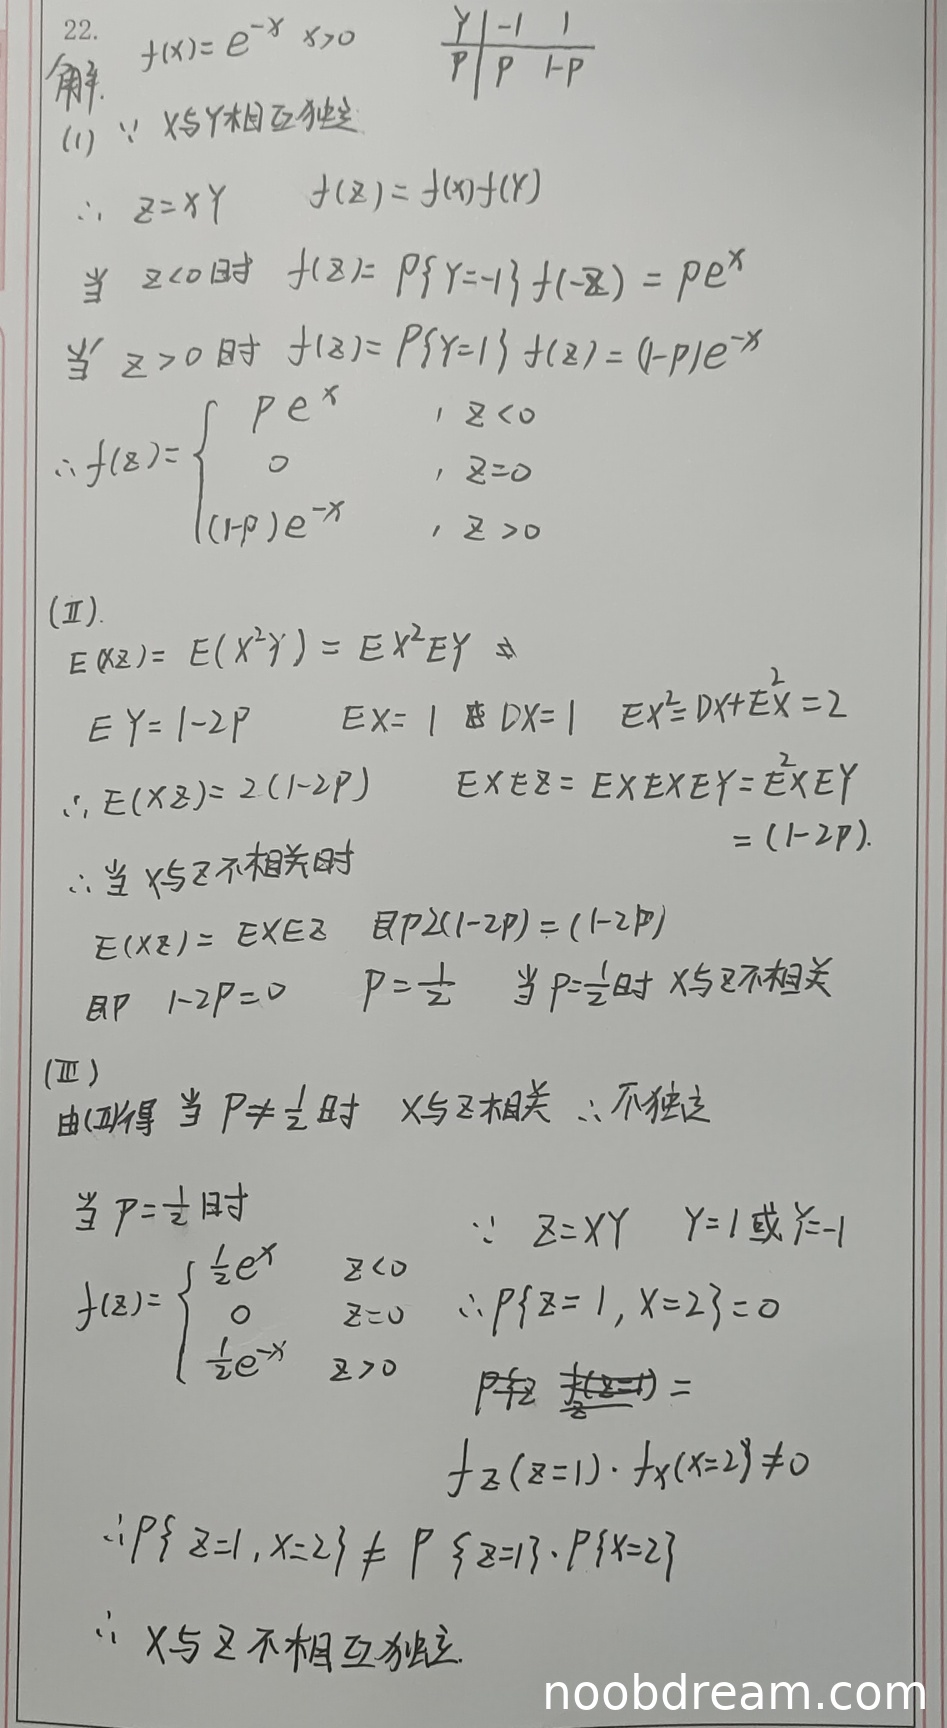 22.
解. f(x)=e^{-x} x>0
Y | -1 1
P | P 1-P
(1) ∵ X与Y相互独立
∴ Z=XY f(z)=f(x)f(Y)
当 z<0时 f(z)=P{Y=-1}f(-z)=pe^x
当 z>0时 f(z)=P{Y=1}f(z)=(1-p)e^{-x}
∴f(z)= { pe^x , z<0
0 , z=0
(1-p)e^{-x} , z>0
(Ⅱ).
E(XZ)=E(X²Y)=EX²EY
EY=1-2P EX=1 DX=1 EX²=DX+E²X=2
∴E(XZ)=2(1-2P) EXEZ=EXEXEY=E²XEY
=(1-2P).
∴当X与Z不相关时
E(XZ)=EXEZ 即2(1-2P)=(1-2P)
即 1-2P=0 P=1/2 当P=1/2时 X与Z不相关
(Ⅲ)
由(Ⅱ)得 当P≠1/2时 X与Z相关 ∴不独立
当P=1/2时
∵ Z=XY Y=1或Y=-1
f(z)= { 1/2 e^x z<0
0 z=0
1/2 e^{-x} z>0
∴P{Z=1,X=2}=0
f_Z(z=1)·f_X(x=2)≠0
∴P{Z=1,X=2}≠P{Z=1}·P{X=2}
∴ X与Z不相互独立.
noobdream.com